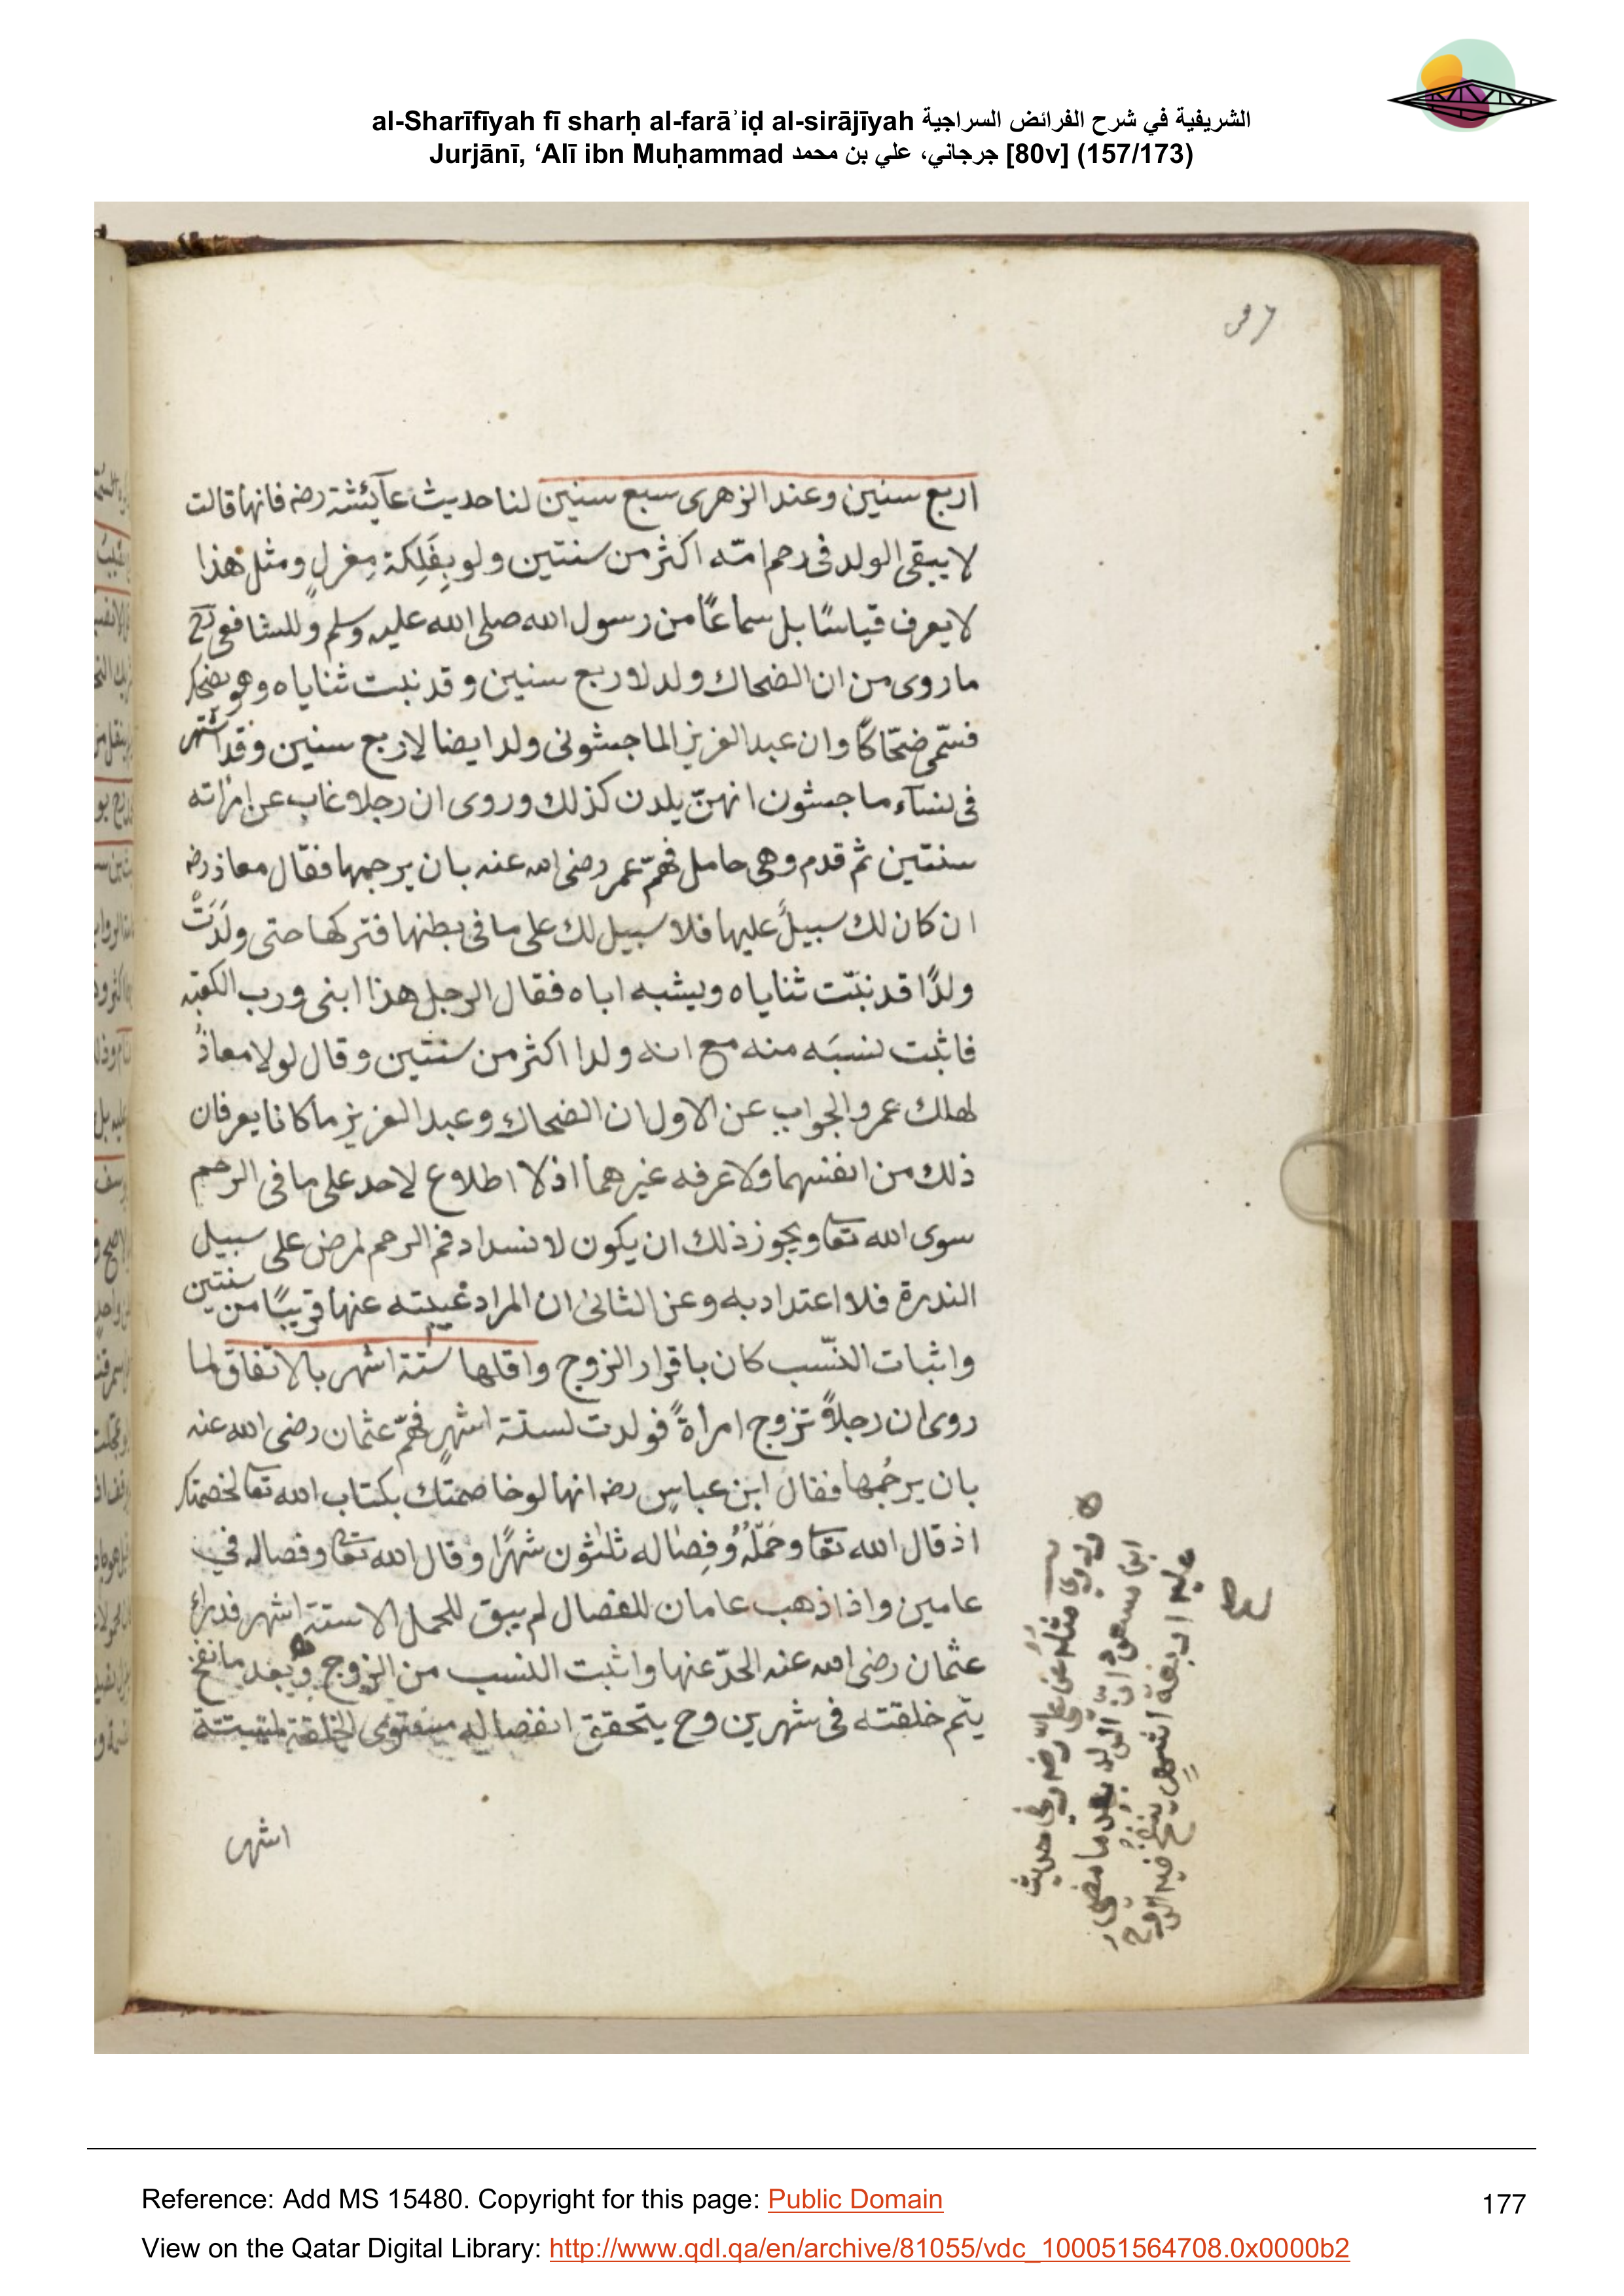 al-Sharīfīyah fī sharḥ al-farāʾiḍ al-sirājīyah الشريفية في شرح الفرائض السراجية
Jurjānī, ‘Alī ibn Muḥammad جرجاني، علي بن محمد [80v] (157/173)
اربع سنين وعند الزهرى سبع سنين لنا حديث عآئشة رضہ فانها قالت
لا يبقى الولد فى رحم امّه اكثر من سنتين ولو بِفَلِكة مِغزلٍ ومثل هذا
لا يعرف قياسًا بل سماعًا من رسول الله صلى الله عليه وسلم وللشافعى رح
ما روى من ان الضحاك ولد لاربع سنين وقد نبت ثناياه وهو يضحك
فسّمى ضحّاكًا وان عبد العزيز الماجشونى ولد ايضا لاربع سنين وقد اشتهر
فى نسآء ماجشون انهنّ يلدن كذلك وروى ان رجلا غاب عن امرأته
سنتين ثم قدم وهى حامل فهمّ عمر رضى الله عنه بان يرجمها فقال معاذ رضہ
ان كان لك سبيلٌ عليها فلا سبيل لك على ما فى بطنها فتركها حتى ولَدَتْ
ولدًا قد نبّت ثناياه ويشبه اباه فقال الرجل هذا ابنى ورب الكعبه
فاثبت نسبَه منه مع انه ولد اكثر من سنتين وقال لولا معاذُ
لهلك عمر والجواب عن الاول ان الضحاك وعبد العزيز ما كانا يعرفان
ذلك من انفسهما ولا عرفه غيرهما اذ لا اطلاع لاحد على ما فى الرحم
سوى الله تعا ويجوز ذلك ان يكون لانسداد فم الرحم لمرض على سبيل
الندرة فلا اعتداد به وعن الثانى ان المراد غيبته عنها قريبًا من سنتين
واثبات النّسب كان باقرار الزوج واقلها ستة اشهر بالاتفاق لما
روى ان رجلاً تزوج امرأةً فولدت لستة اشهرٍ فهمّ عثمان رضى الله عنه
بان يرجُمها فقال ابن عباسٍ رضہ انها لو خاصمتك بكتاب الله تعا لخصمتك
اذ قال الله تعا وحَمْلُهُ وَفِصَاله ثلثون شهرًا وقال الله تعا وفصاله فى
عامين واذا ذهب عامان للفصال لم يبق للحمل الا ستة اشهر فدرأ
عثمان رضى الله عنه الحدّ عنها واثبت النسب من الزوج وبعد ما نفخ
يتم خلقته فى شهرين وح يتحقق انفصاله مستوى الخلقة لستة
اشهر
وروى مثله عن على رضہ وفى حديث
ابن مسعود ان الولد بعد ما مضى
عليه اربعة اشهرٍ ينفخ فيه الروح
Reference: Add MS 15480. Copyright for this page: Public Domain
177
View on the Qatar Digital Library: http://www.qdl.qa/en/archive/81055/vdc_100051564708.0x0000b2